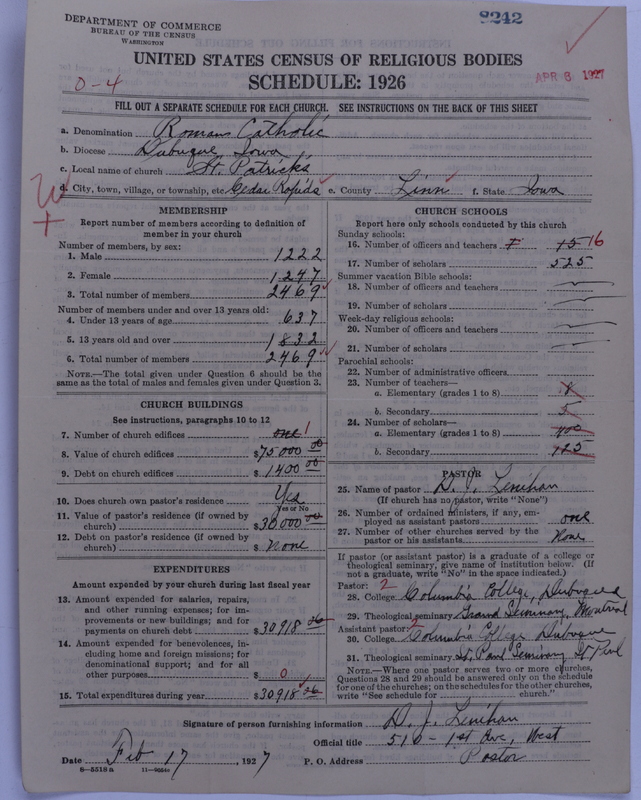 DEPARTMENT OF COMMERCE
BUREAU OF THE CENSUS
WASHINGTON
8242
UNITED STATES CENSUS OF RELIGIOUS BODIES
SCHEDULE: 1926
0-4
APR 8 1927
FILL OUT A SEPARATE SCHEDULE FOR EACH CHURCH. SEE INSTRUCTIONS ON THE BACK OF THIS SHEET
a. Denomination Roman Catholic
b. Diocese Dubuque, Iowa
c. Local name of church St. Patrick's
d. City, town, village, or township, etc. Cedar Rapids e. County Linn f. State Iowa
MEMBERSHIP
Report number of members according to definition of
member in your church
Number of members, by sex:
1. Male 1222
2. Female 1247
3. Total number of members 2469
Number of members under and over 13 years old:
4. Under 13 years of age 637
5. 13 years old and over 1832
6. Total number of members 2469
NOTE.—The total given under Question 6 should be the
same as the total of males and females given under Question 3.
CHURCH BUILDINGS
See instructions, paragraphs 10 to 12
7. Number of church edifices one 1
8. Value of church edifices $75000 00
9. Debt on church edifices $1400 00
10. Does church own pastor's residence Yes
Yes or No
11. Value of pastor's residence (if owned by
church) $30000 00
12. Debt on pastor's residence (if owned by
church) $ None
EXPENDITURES
Amount expended by your church during last fiscal year
13. Amount expended for salaries, repairs,
and other running expenses; for im-
provements or new buildings; and for
payments on church debt $30918 06
14. Amount expended for benevolences, in-
cluding home and foreign missions; for
denominational support; and for all
other purposes $ 0
15. Total expenditures during year $30918 06
CHURCH SCHOOLS
Report here only schools conducted by this church
Sunday schools:
16. Number of officers and teachers 15 16
17. Number of scholars 525
Summer vacation Bible schools:
18. Number of officers and teachers
19. Number of scholars
Week-day religious schools:
20. Number of officers and teachers
21. Number of scholars
Parochial schools:
22. Number of administrative officers
23. Number of teachers—
a. Elementary (grades 1 to 8) 8
b. Secondary 5
24. Number of scholars—
a. Elementary (grades 1 to 8) 400
b. Secondary 125
PASTOR
25. Name of pastor D. J. Lenihan
(If church has no pastor, write "None")
26. Number of ordained ministers, if any, em-
ployed as assistant pastors one
27. Number of other churches served by the
pastor or his assistants None
If pastor (or assistant pastor) is a graduate of a college or
theological seminary, give name of institution below. (If
not a graduate, write "No" in the space indicated.)
Pastor: 2
28. College Columbia College, Dubuque
29. Theological seminary Grand Seminary, Montreal
Assistant pastor: 2
30. College Columbia College Dubuque
31. Theological seminary St. Paul Seminary St Paul
NOTE.—Where one pastor serves two or more churches,
Questions 28 and 29 should be answered only on the schedule
for one of the churches; on the schedules for the other churches,
write "See schedule for church."
Signature of person furnishing information D. J. Lenihan
Official title 510 - 1st Ave, West
Date Feb 17 1927 P. O. Address Pastor
8—5518 a